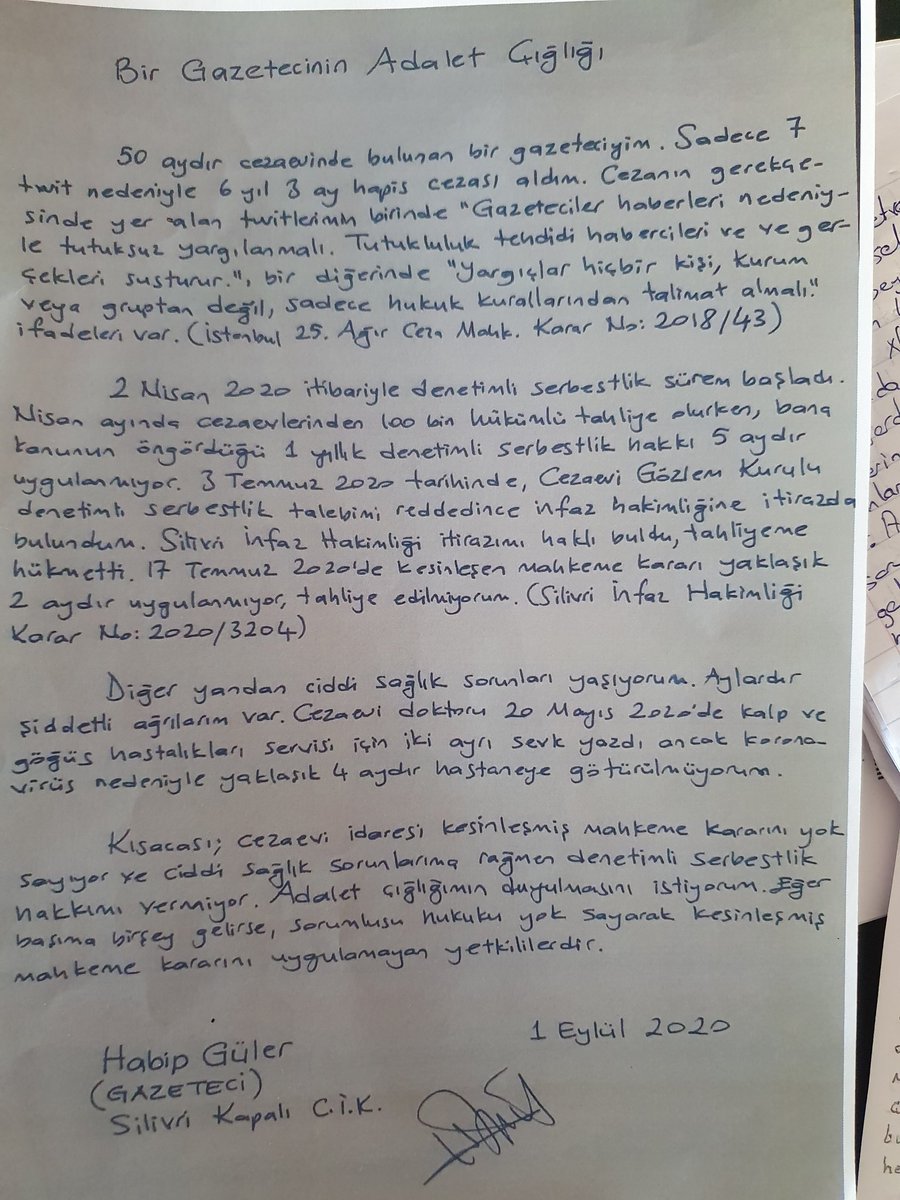 Bir Gazetecinin Adalet Çığlığı
50 aydır cezaevinde bulunan bir gazeteciyim. Sadece 7
twit nedeniyle 6 yıl 3 ay hapis cezası aldım. Cezanın gerekçe-
sinde yer alan twitlerimin birinde "Gazeteciler haberleri nedeniy-
le tutuksuz yargılanmalı. Tutukluluk tehdidi habercileri ve ve ger-
çekleri susturur.", bir diğerinde "Yargıçlar hiçbir kişi, kurum
veya gruptan değil, sadece hukuk kurallarından talimat almalı."
ifadeleri var. (İstanbul 25. Ağır Ceza Mahk. Karar No: 2018/43)
2 Nisan 2020 itibariyle denetimli serbestlik sürem başladı.
Nisan ayında cezaevlerinden 100 bin hükümlü tahliye olurken, bana
kanunun öngördüğü 1 yıllık denetimli serbestlik hakkı 5 aydır
uygulanmıyor. 3 Temmuz 2020 tarihinde, Cezaevi Gözlem Kurulu
denetimli serbestlik talebimi reddedince infaz hakimliğine itirazda
bulundum. Silivri İnfaz Hakimliği itirazımı haklı buldu, tahliyeme
hükmetti. 17 Temmuz 2020'de kesinleşen mahkeme kararı yaklaşık
2 aydır uygulanmıyor, tahliye edilmiyorum. (Silivri İnfaz Hakimliği
Karar No: 2020/3204)
Diğer yandan ciddi sağlık sorunları yaşıyorum. Aylardır
şiddetli ağrılarım var. Cezaevi doktoru 20 Mayıs 2020'de kalp ve
göğüs hastalıkları servisi için iki ayrı sevk yazdı ancak korona-
virüs nedeniyle yaklaşık 4 aydır hastaneye götürülmüyorum.
Kısacası; cezaevi idaresi kesinleşmiş mahkeme kararını yok
sayıyor ve ciddi sağlık sorunlarıma rağmen denetimli serbestlik
hakkımı vermiyor. Adalet çığlığımın duyulmasını istiyorum. Eğer
başıma birşey gelirse, sorumlusu hukuku yok sayarak kesinleşmiş
mahkeme kararını uygulamayan yetkililerdir.
1 Eylül 2020
Habip Güler
(GAZETECİ)
Silivri Kapalı C.İ.K.